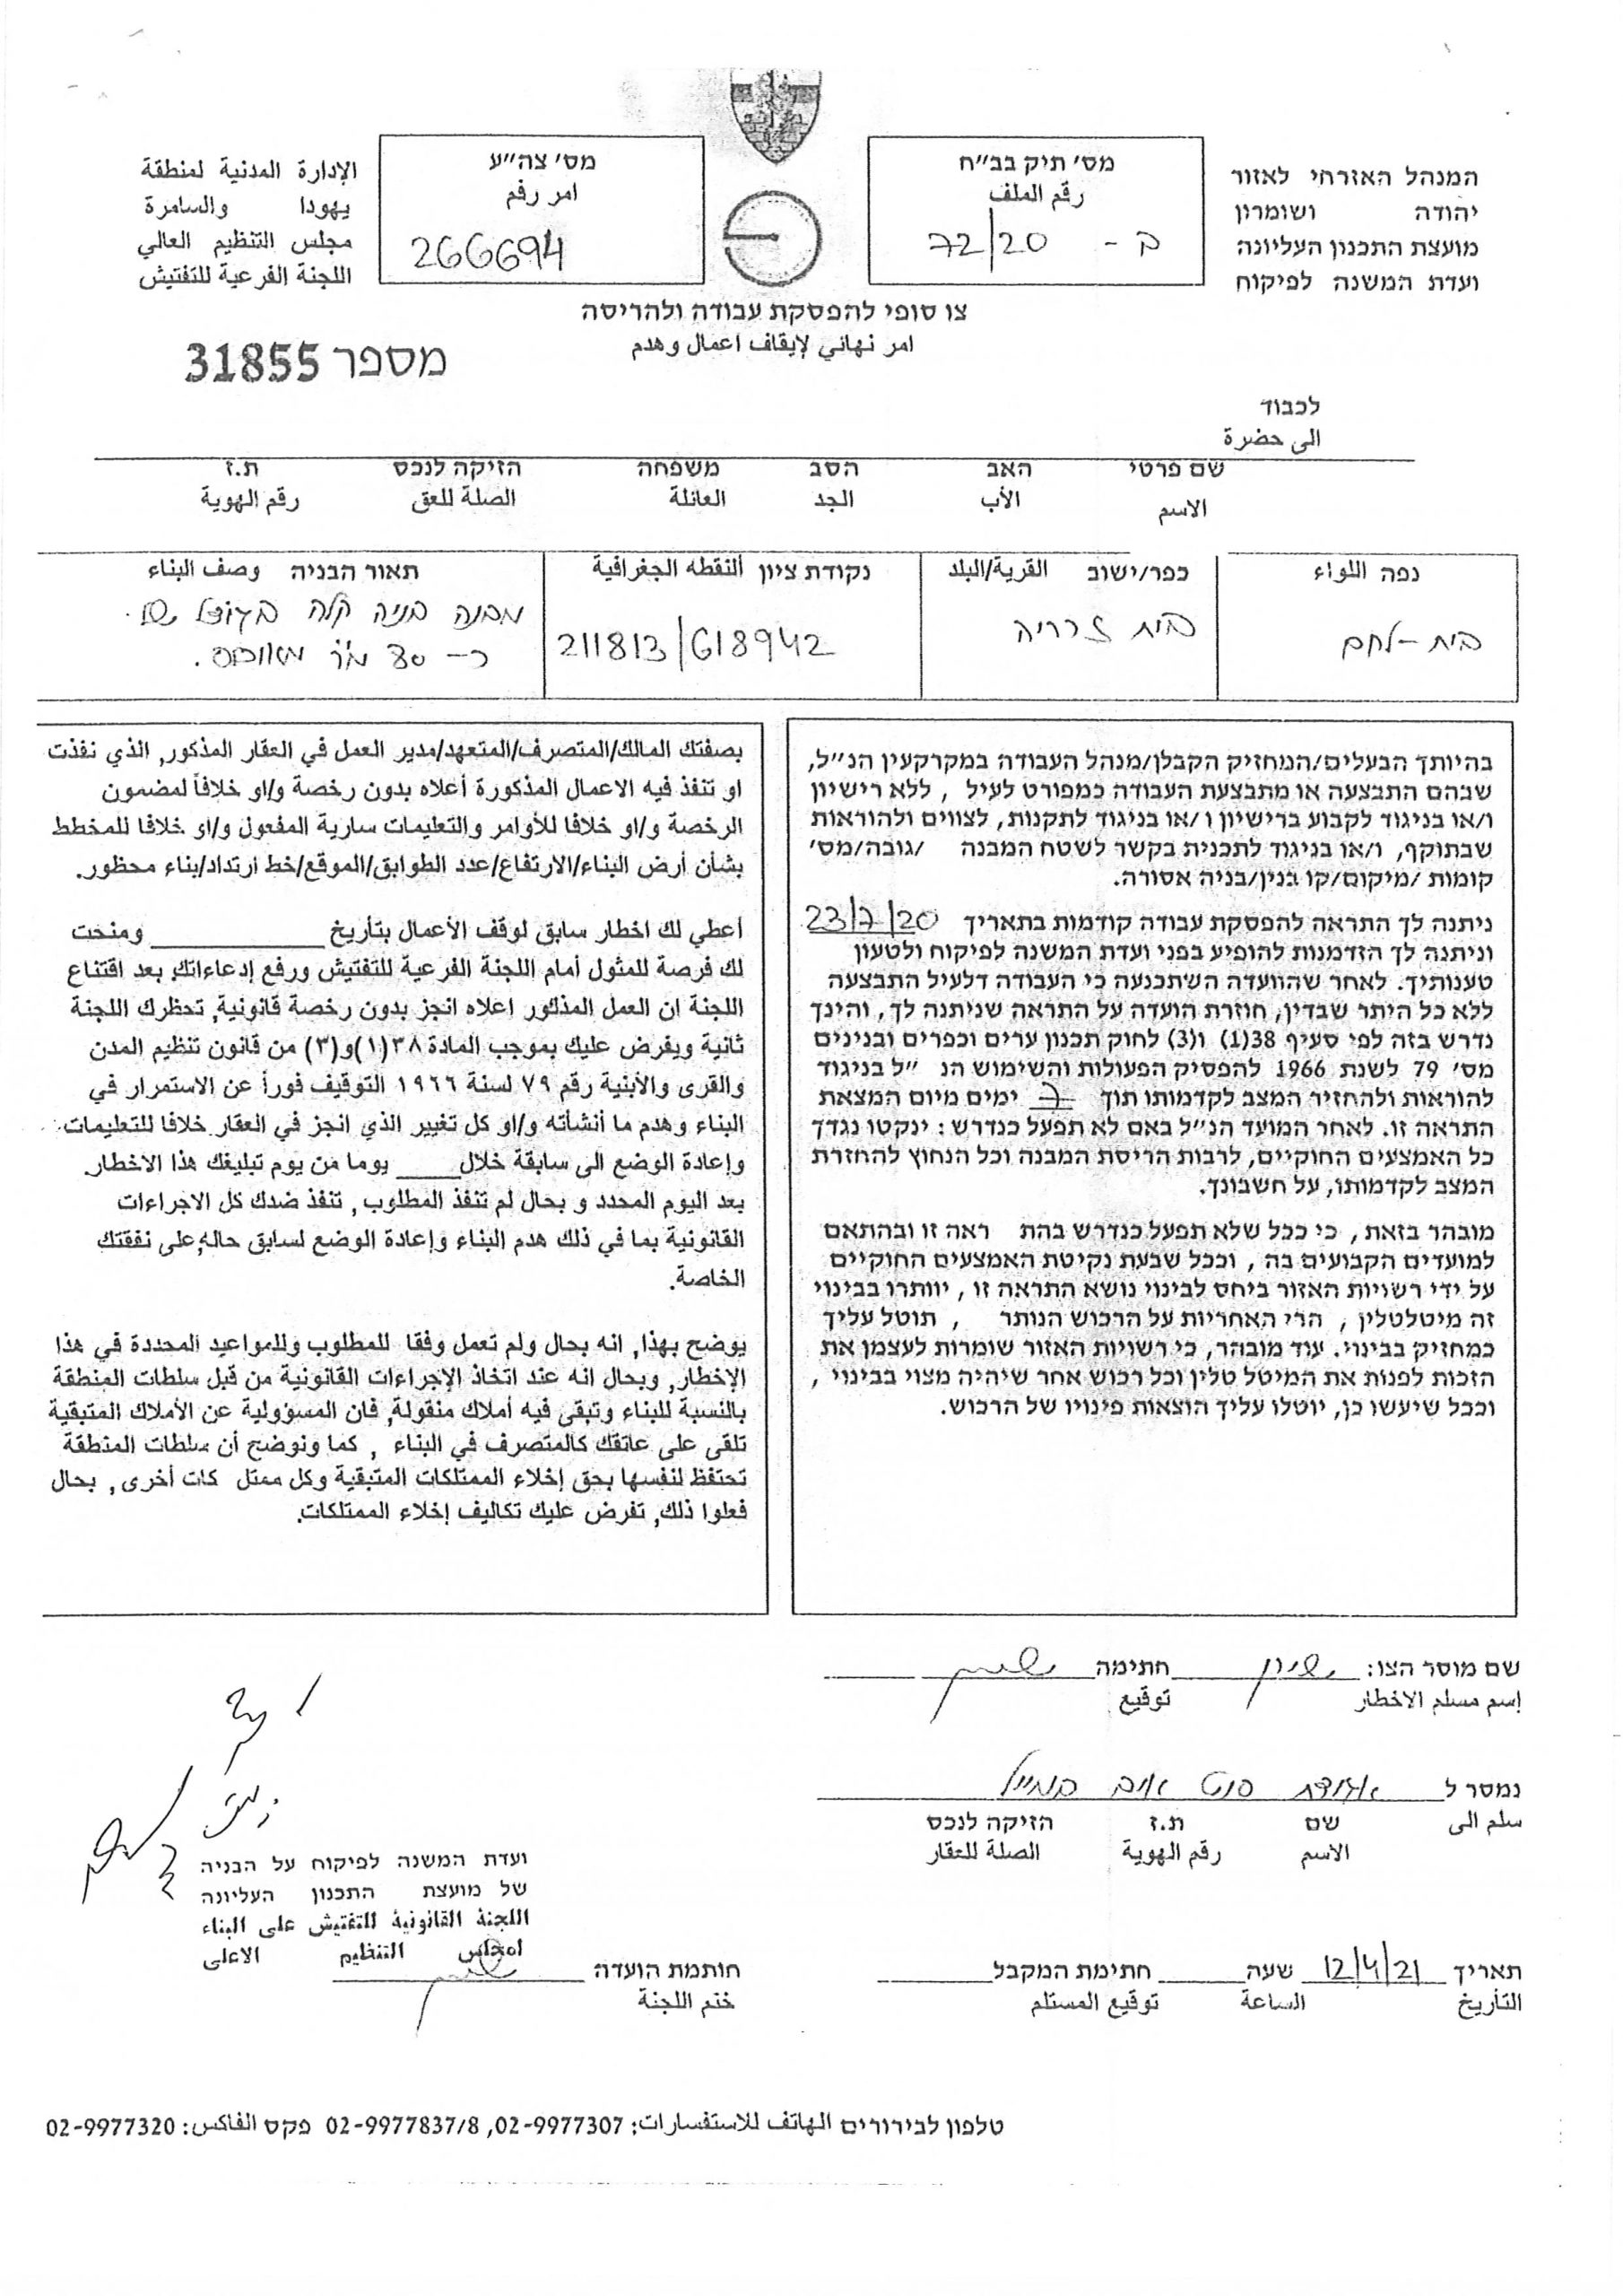 המנהל האזרחי לאזור
יהודה ושומרון
מועצת התכנון העליונה
ועדת המשנה לפיקוח
מס׳ תיק בב״ח
رقم الملف
ב - 72/20
מס׳ צה״ע
امر رقم
266694
الإدارة المدنية لمنطقة
يهودا والسامرة
مجلس التنظيم العالي
اللجنة الفرعية للتفتيش
צו סופי להפסקת עבודה ולהריסה
امر نهائي لإيقاف اعمال وهدم
מספר 31855
לכבוד
الى حضرة
שם פרטי האב הסב משפחה הזיקה לנכס ת.ז
الاسم الأب الجد العائلة الصلة للعق رقم الهوية
נפה اللواء
בית-לחם
כפר/ישוב القرية/البلد
בית
נקודת ציון النقطه الجغرافية
211813/618942
תאור הבניה وصف البناء
מבנה בניה קלה בגודל של
כ- 80 מ״ר
בהיותך הבעלים/המחזיק הקבלן/מנהל העבודה במקרקעין הנ״ל,
שבהם התבצעה או מתבצעת העבודה כמפורט לעיל , ללא רישיון
ו/או בניגוד לקבוע ברישיון ו/או בניגוד לתקנות, לצווים ולהוראות
שבתוקף, ו/או בניגוד לתכנית בקשר לשטח המבנה /גובה/מס׳
קומות /מיקום/קו בנין/בניה אסורה.
ניתנה לך התראה להפסקת עבודה קודמות בתאריך 23/7/20
וניתנה לך הזדמנות להופיע בפני ועדת המשנה לפיקוח ולטעון
טענותיך. לאחר שהוועדה השתכנעה כי העבודה דלעיל התבצעה
ללא כל היתר שבדין, חוזרת הועדה על התראה שניתנה לך, והינך
נדרש בזה לפי סעיף 38(1) ו(3) לחוק תכנון ערים וכפרים ובנינים
מס׳ 79 לשנת 1966 להפסיק הפעולות והשימוש הנ ״ל בניגוד
להוראות ולהחזיר המצב לקדמותו תוך 7 ימים מיום המצאת
התראה זו. לאחר המועד הנ״ל באם לא תפעל כנדרש: ינקטו נגדך
כל האמצעים החוקיים, לרבות הריסת המבנה וכל הנחוץ להחזרת
המצב לקדמותו, על חשבונך.
מובהר בזאת, כי ככל שלא תפעל כנדרש בהת ראה זו ובהתאם
למועדים הקבועים בה , וככל שבעת נקיטת האמצעים החוקיים
על ידי רשויות האזור ביחס לבינוי נושא התראה זו , יוותרו בבינוי
זה מיטלטלין , הרי האחריות על הרכוש הנותר , תוטל עליך
כמחזיק בבינוי. עוד מובהר, כי רשויות האזור שומרות לעצמן את
הזכות לפנות את המיטל טלין וכל רכוש אחר שיהיה מצוי בבינוי ,
וככל שיעשו כן, יוטלו עליך הוצאות פינויו של הרכוש.
بصفتك المالك/المتصرف/المتعهد/مدير العمل في العقار المذكور, الذي نفذت
او تنفذ فيه الاعمال المذكورة أعلاه بدون رخصة و/او خلافاً لمضمون
الرخصة و/او خلافا للأوامر والتعليمات سارية المفعول و/او خلافا للمخطط
بشأن أرض البناء/الارتفاع/عدد الطوابق/الموقع/خط ارتداد/بناء محظور.
أعطي لك اخطار سابق لوقف الأعمال بتأريخ ومنحت
لك فرصة للمثول أمام اللجنة الفرعية للتفتيش ورفع إدعاءاتك, بعد اقتناع
اللجنة ان العمل المذكور اعلاه انجز بدون رخصة قانونية, تحظرك اللجنة
ثانية ويفرض عليك بموجب المادة ٣٨(١)و(٣) من قانون تنظيم المدن
والقرى والأبنية رقم ٧٩ لسنة ١٩٦٦ التوقيف فوراً عن الاستمرار في
البناء وهدم ما أنشأته و/او كل تغيير الذي انجز في العقار خلافا للتعليمات
وإعادة الوضع الى سابقة خلال يوما من يوم تبليغك هذا الاخطار.
بعد اليوم المحدد و بحال لم تنفذ المطلوب, تنفذ ضدك كل الاجراءات
القانونية بما في ذلك هدم البناء وإعادة الوضع لسابق حاله, على نفقتك
الخاصة.
يوضح بهذا, انه بحال ولم تعمل وفقا للمطلوب وللمواعيد المحددة في هذا
الإخطار, وبحال انه عند اتخاذ الإجراءات القانونية من قبل سلطات المنطقة
بالنسبة للبناء وتبقى فيه أملاك منقولة, فان المسؤولية عن الأملاك المتبقية
تلقى على عاتقك كالمتصرف في البناء , كما ونوضح أن سلطات المنطقة
تحتفظ لنفسها بحق إخلاء الممتلكات المتبقية وكل ممتل كات أخرى, بحال
فعلوا ذلك, تفرض عليك تكاليف إخلاء الممتلكات.
שם מוסר הצו: חתימה
إسم مسلم الاخطار توقيع
נמסר ל אגודת
سلم الى
שם ת.ז הזיקה לנכס
الاسم رقم الهوية الصلة للعقار
ועדת המשנה לפיקוח על הבניה
של מועצת התכנון העליונה
اللجنة القانونية للتفتيش على البناء
لمجلس التنظيم الاعلى
תאריך 12/4/21 שעה חתימת המקבל חותמת הועדה
التأريخ الساعة توقيع المستلم ختم اللجنة
טלפון לבירורים الهاتف للاستفسارات: 02-9977307, 02-9977837/8 פקס الفاكس: 02-9977320